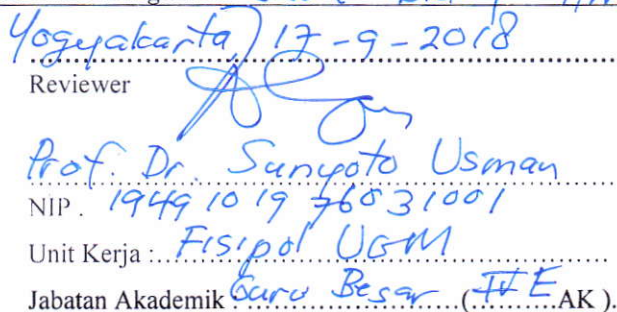 Yogyakarta, 17-9-2018
Reviewer
Prof. Dr. Sunyoto Usman
NIP. 19491019 76031001
Unit Kerja : Fisipol UGM
Jabatan Akademik : Guru Besar (IV E AK ).